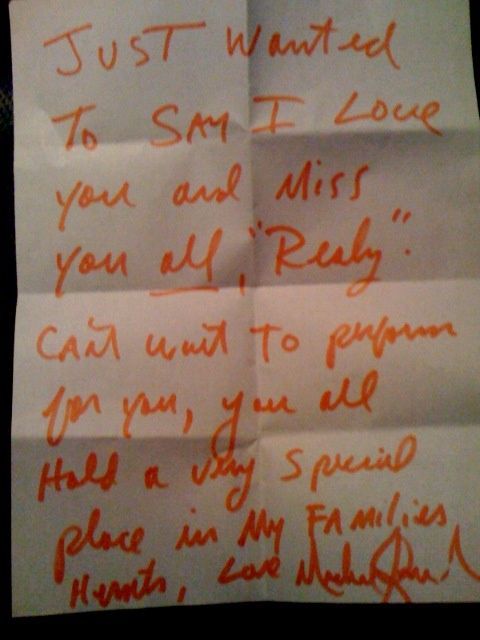 JUST Wanted
To SAY I Love
you and Miss
you all, "Realy".
CAn't wait To perform
for you, you all
Hold a very special
place in My FAMilies
Hearts, Love Michael Jackson